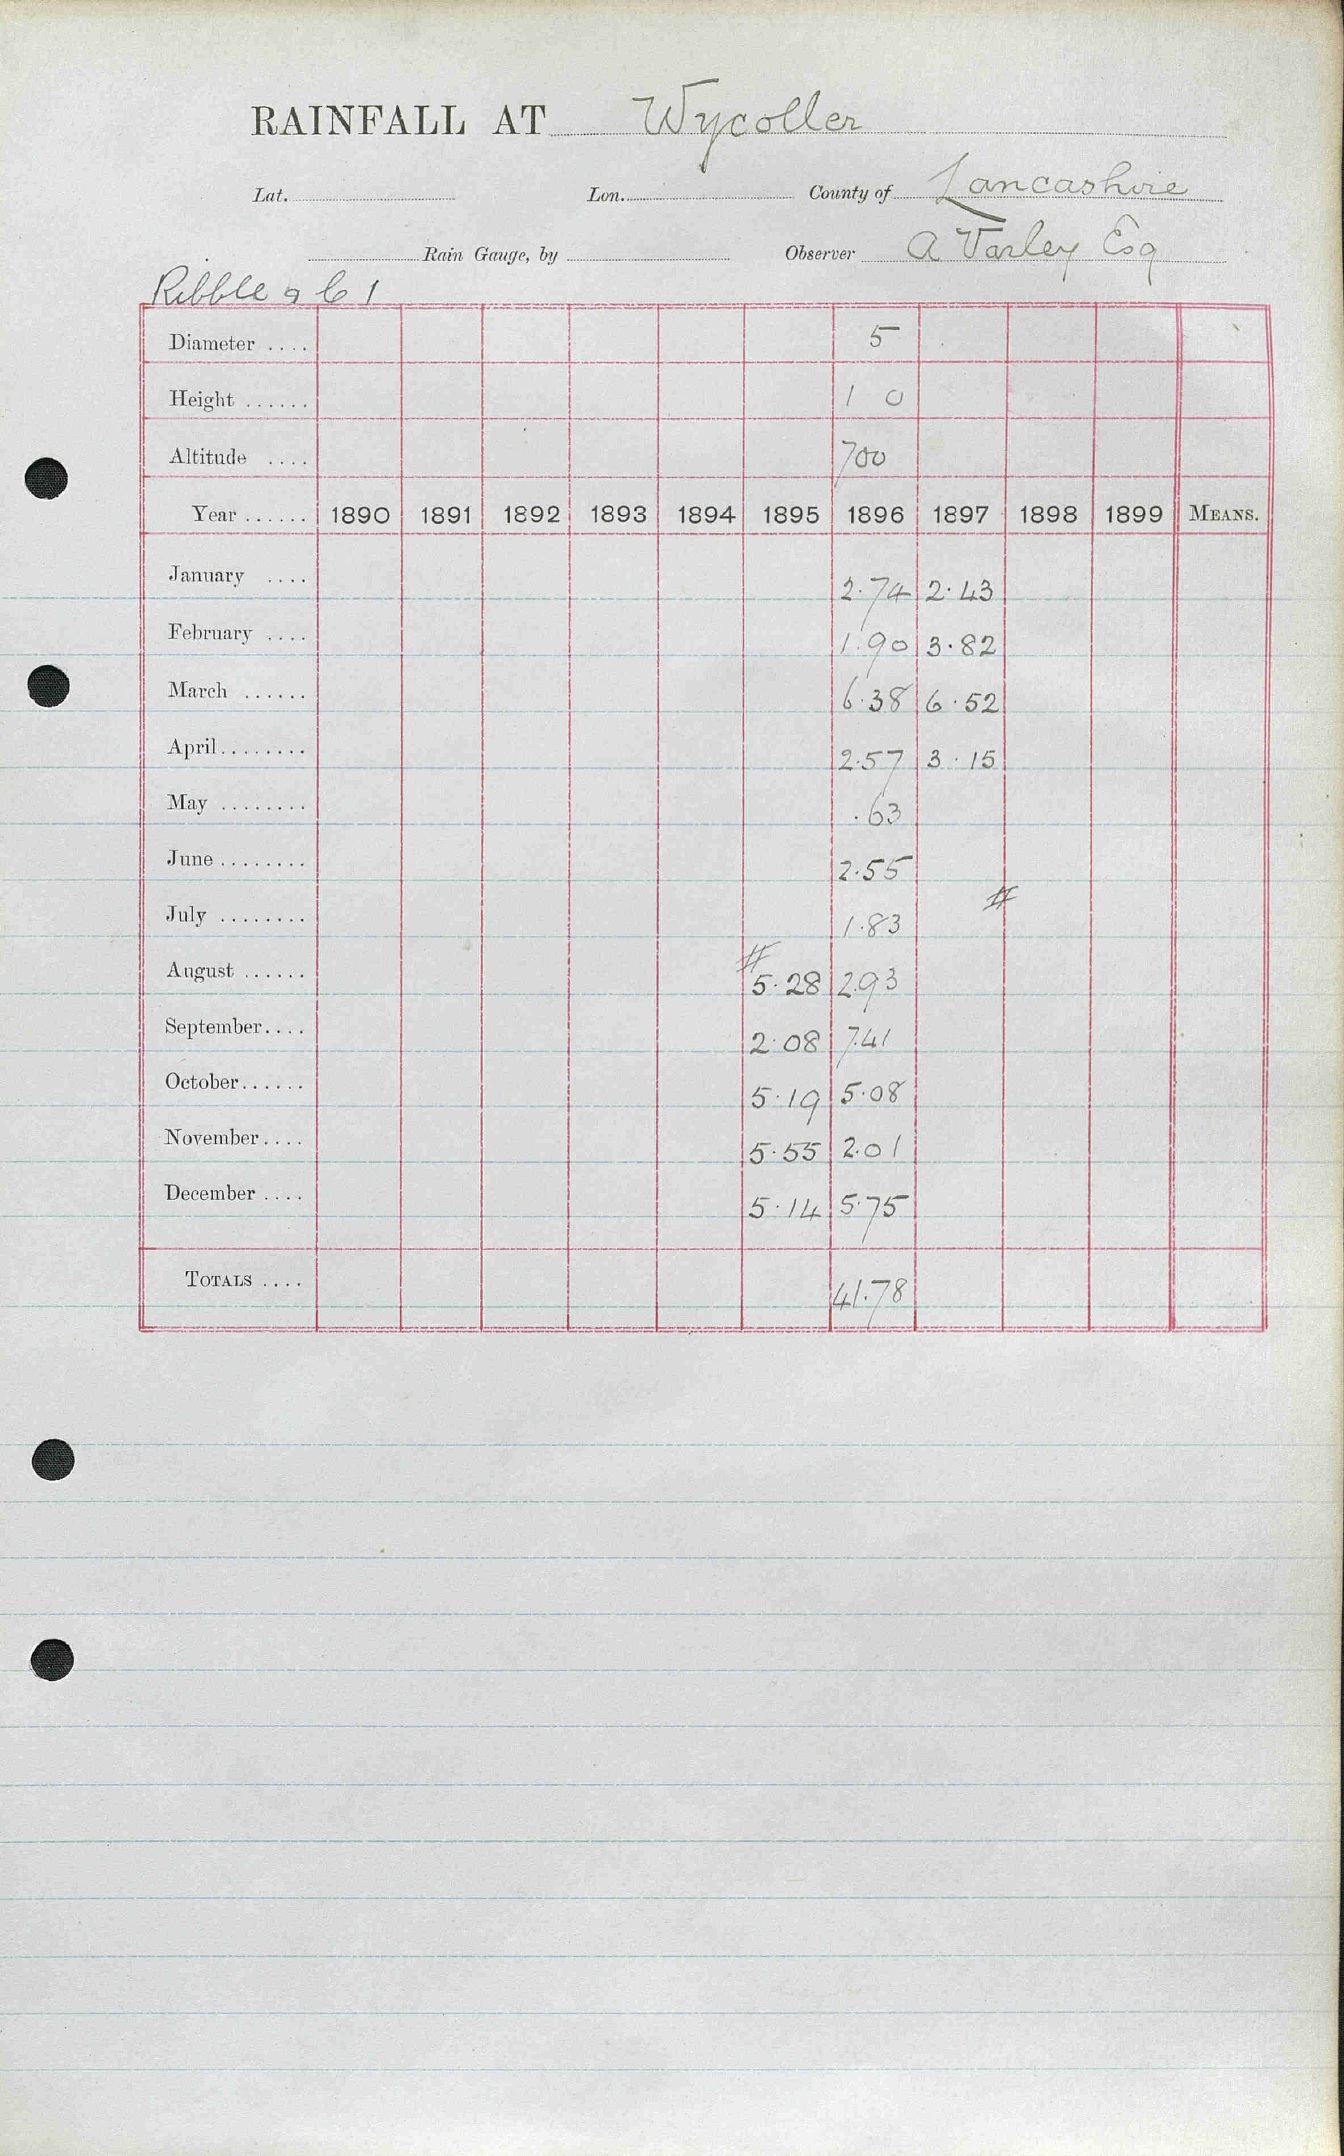 RAINFALL AT Wycoller
Lat. Lon. County of Lancashire
Rain Gauge, by Observer A Varley Esq
Ribble
Diameter .... 5
Height ...... 1 0
Altitude .... 700
Year ...... 1890 1891 1892 1893 1894 1895 1896 1897 1898 1899 MEANS.
January .... 2.74 2.43
February .... 1.90 3.82
March ...... 6.38 6.52
April........ 2.57 3.15
May ........ .63
June ........ 2.55
July ........ 1.83 #
August ...... # 5.28 2.93
September.... 2.08 7.41
October...... 5.19 5.08
November.... 5.55 2.01
December .... 5.14 5.75
TOTALS .... 41.78